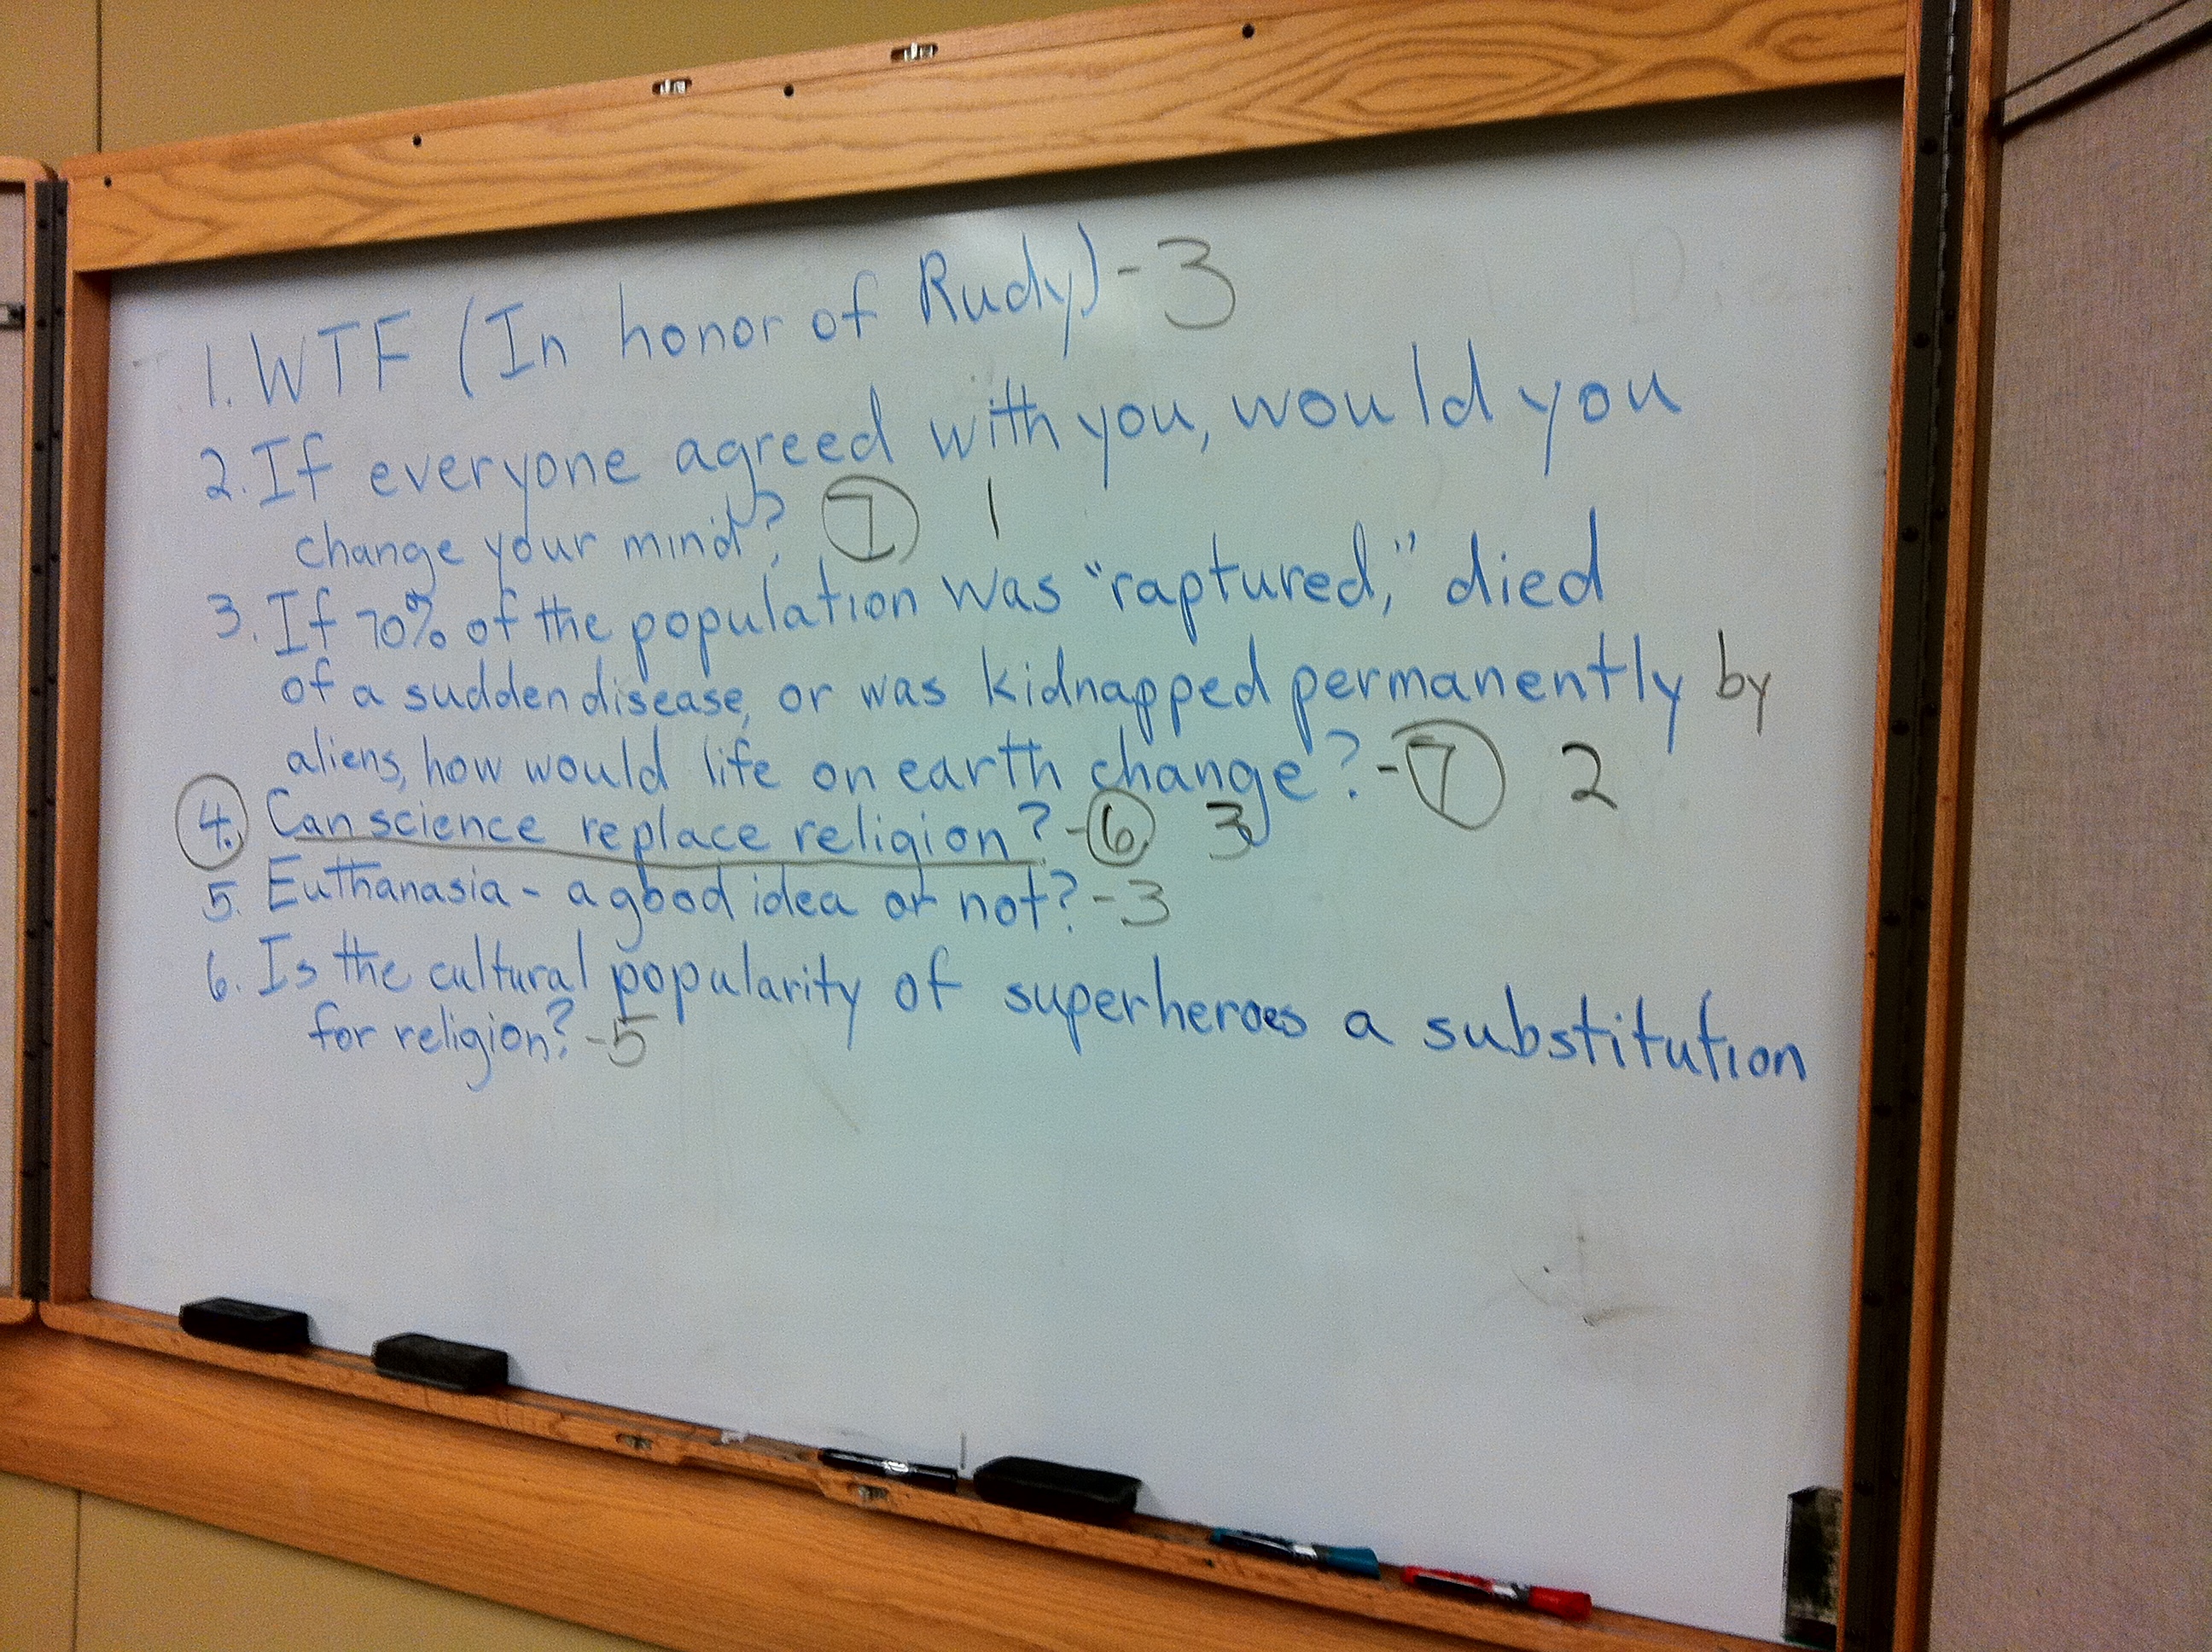 1. WTF (In honor of Rudy) - 3
2. If everyone agreed with you, would you
change your mind? 7 1
3. If 70% of the population was "raptured," died
of a sudden disease, or was kidnapped permanently by
aliens, how would life on earth change? - 7 2
4. Can science replace religion? - 6 3
5. Euthanasia - a good idea or not? - 3
6. Is the cultural popularity of superheroes a substitution
for religion? - 5